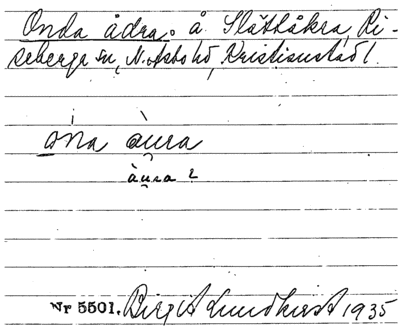 Onda ådra. å Slättåkra, Ri-
seberga sn, N. Åsbo hd, Kristianstad l.
óna àu̯ra
àu̯ra
Nr 5501. Birgit Lundkvist 1935